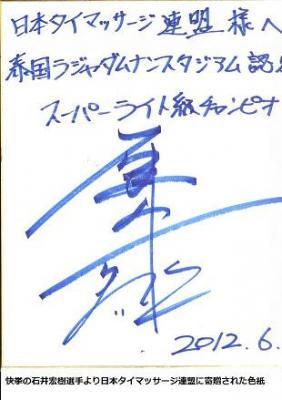 日本タイマッサージ連盟様へ
泰国ラジャダムナンスタジアム認
スーパーライト級チャンピオ
2012.6.
快挙の石井宏樹選手より日本タイマッサージ連盟に寄贈された色紙